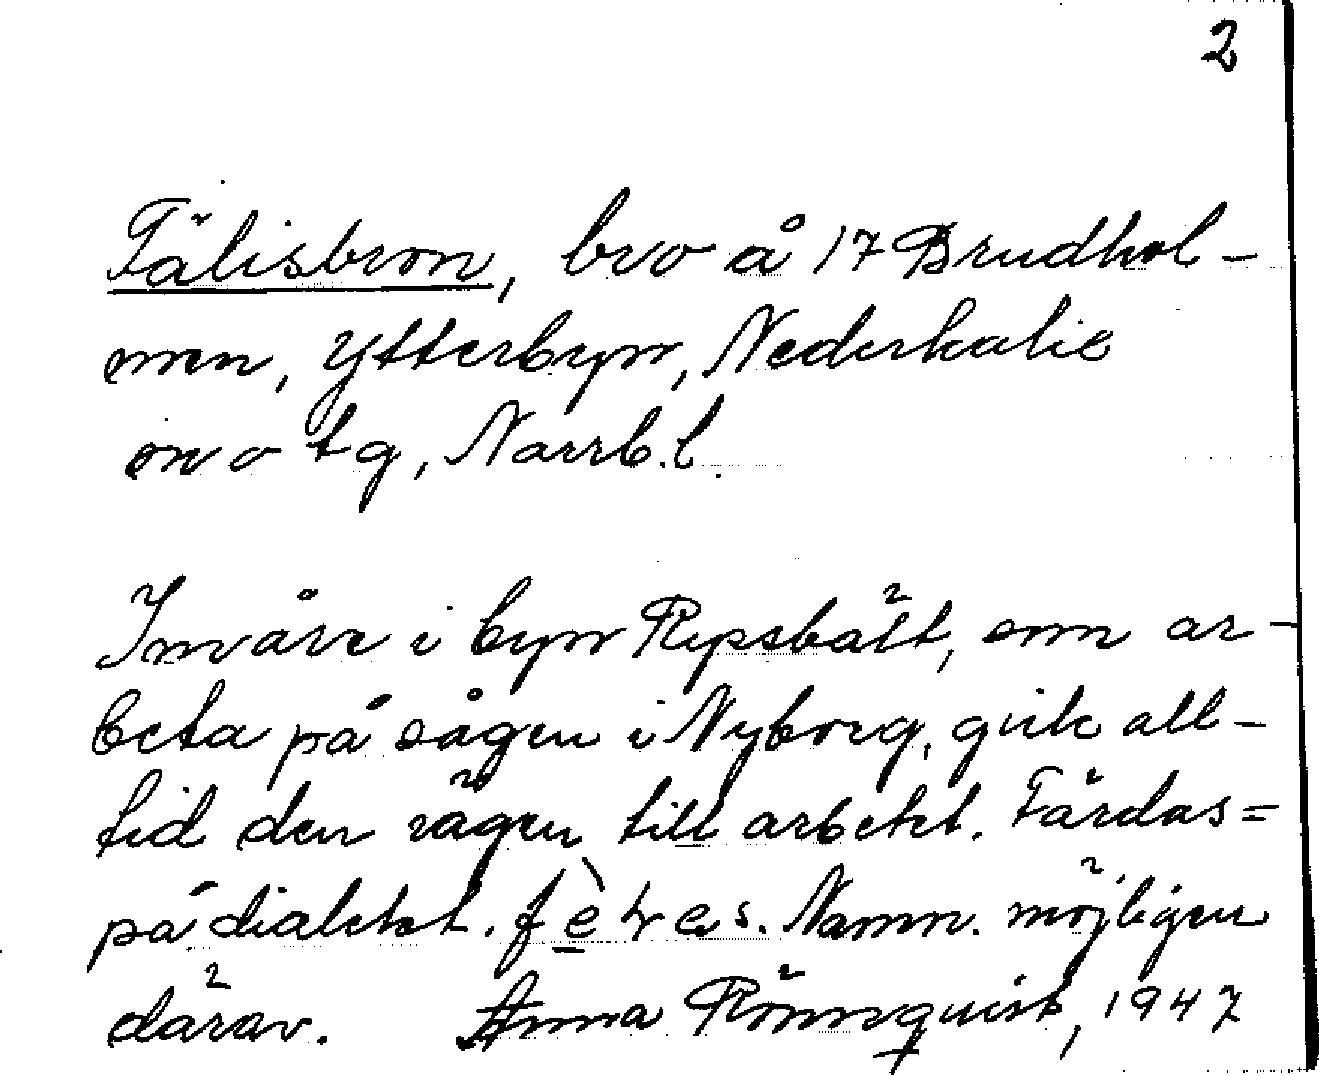 2
Fälisbron, bro å 17 Brudhol-
men, Ytterbyn, Nederkalix
sn o tg, Norrb. l.
Invåre i byn Rypsbält, som ar-
beta på sågen i Nyborg, gick all-
tid den vägen till arbetet. Färdas=
på dialekt. Namn. möjligen
därav. Anna Rönnquist, 1947